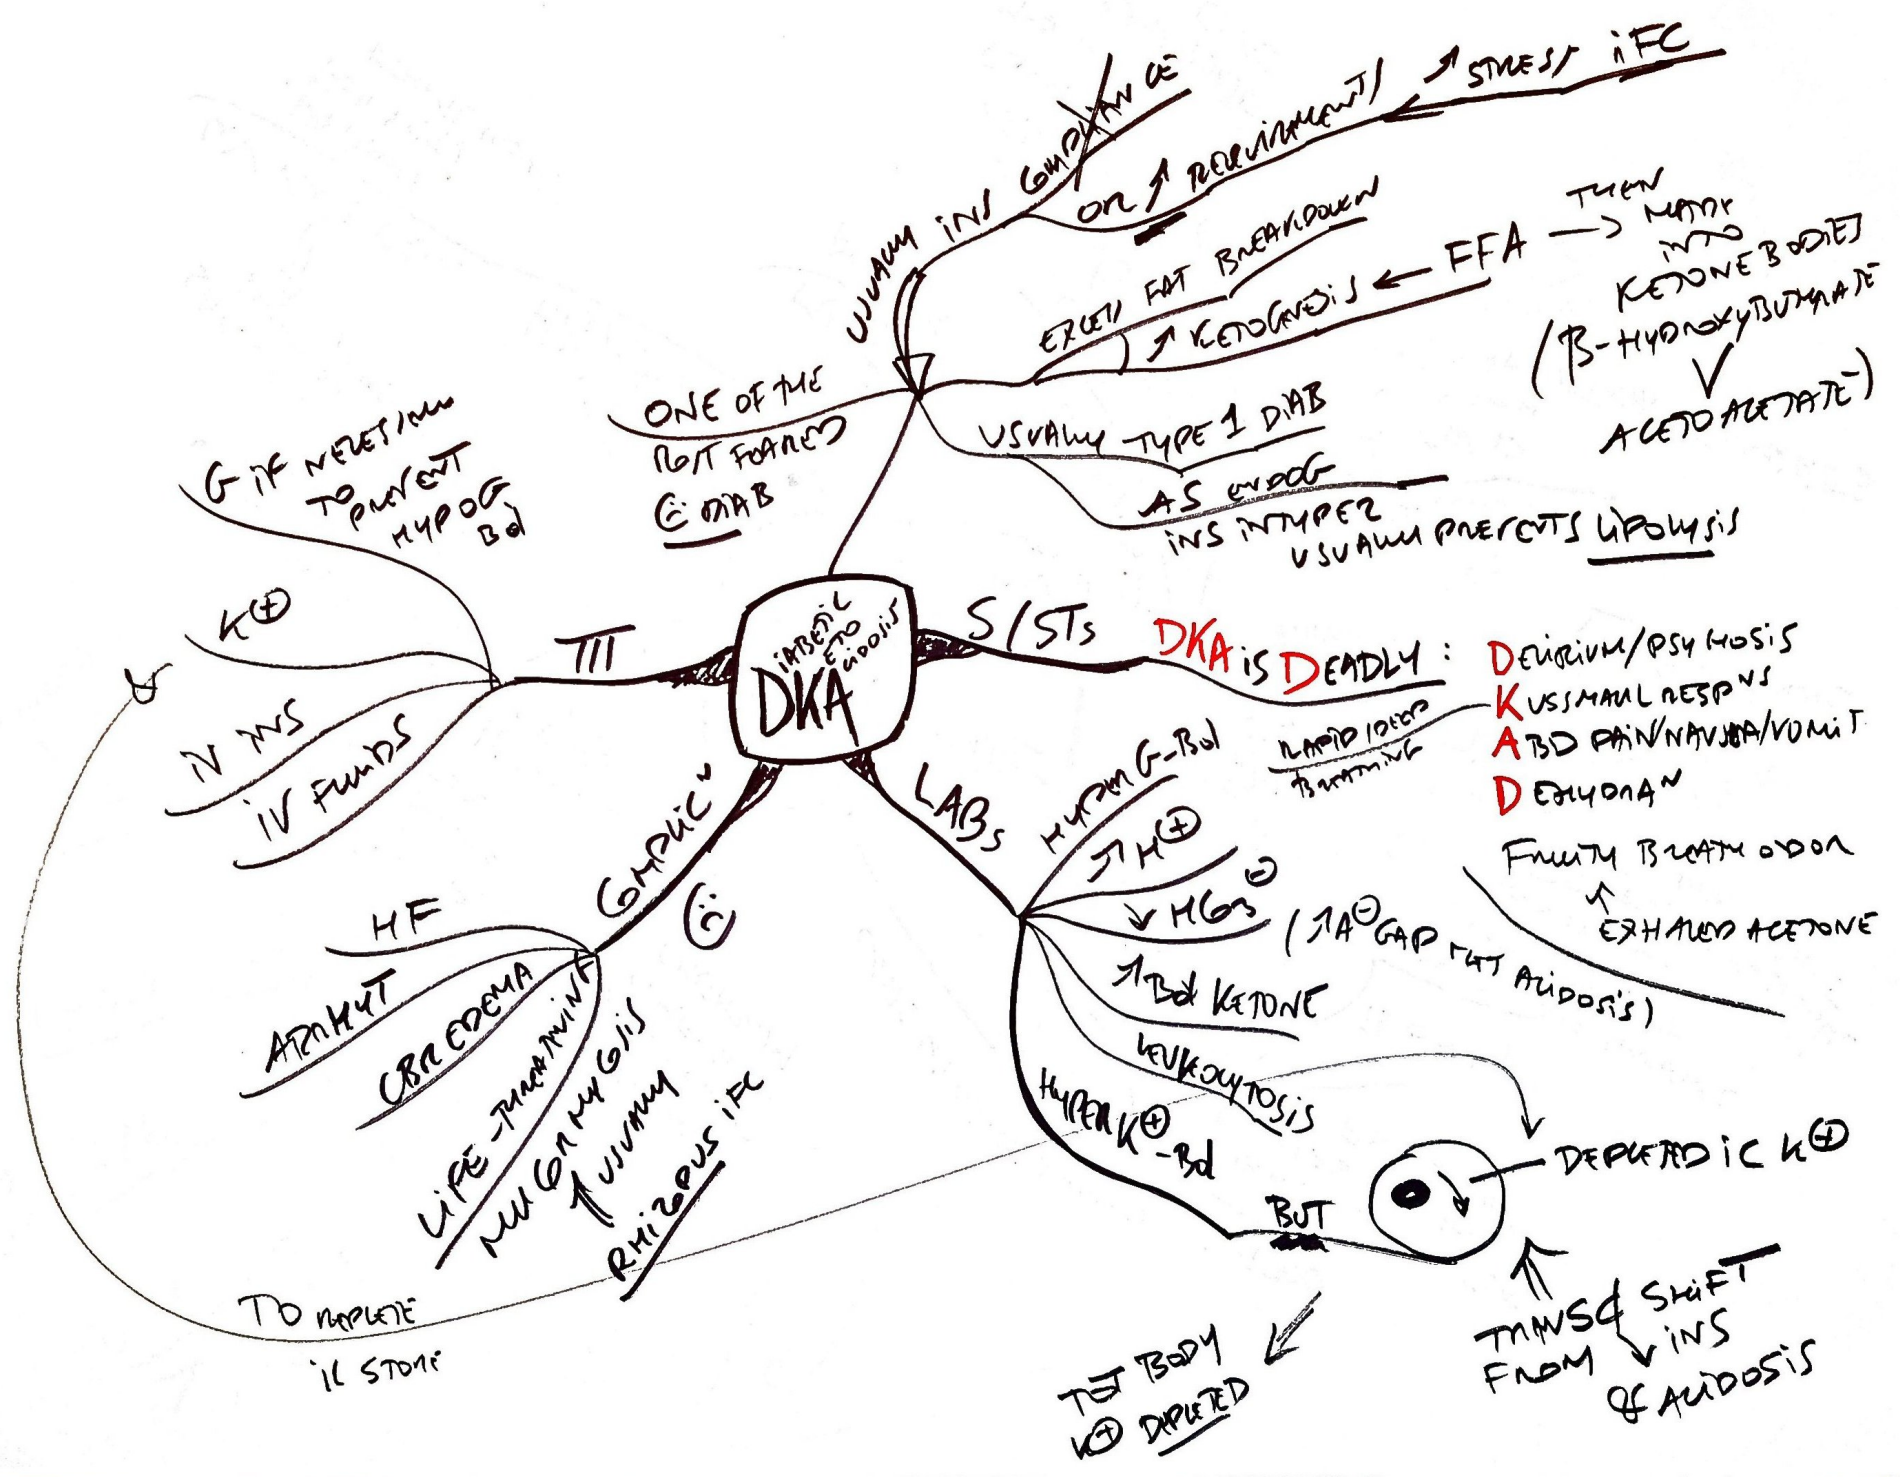 DIABETIC
KETO
ACIDOSIS
DKA
USUALLY INS COMPLIANCE
OR ↗ REQUIREMENTS
↗ STRESS iFC
EXCESS FAT BREAKDOWN
↗ KETOGENESIS ← FFA →
THEN
MADE
INTO
KETONE BODIES
(β-HYDROXYBUTYRATE
ACETOACETATE)
ONE OF THE
FEARED
DIAB
USUALLY TYPE 1 DIAB
AS ENDOG
INS IN TYPE 2
USUALLY PREVENTS LIPOLYSIS
S/STs
DKA iS DEADLY :
DELIRIUM/PSYCHOSIS
KUSSMAUL RESPNS
ABD PAIN/NAUSEA/VOMIT
DEHYDRAN
RAPID/DEEP
BREATHING
FRUITY BREATH ODOR
↑
EXHALED ACETONE
LABs
HYPER G-Bld
↗ H⊕
↘ HCO3⊖
(↗A⊖ GAP MET ACIDOSIS)
↗ Bld KETONE
LEUKOCYTOSIS
HYPER K⊕-Bld
BUT
DEPLETED iC K⊕
TRANSC SHIFT
FROM ↘ INS
& ACIDOSIS
TOT BODY
K⊕ DEPLETED
COMPLICN
HF
ARRHYT
CBR EDEMA
LIFE-THREATENING
MUCORMYCOSIS
↑ USUALLY
RHIZOPUS iFC
TTT
G iF NECESSARY
TO
PREVENT
HYPOG
Bld
K⊕
IV INS
IV FLUIDS
&
TO REPLETE
iC STORE